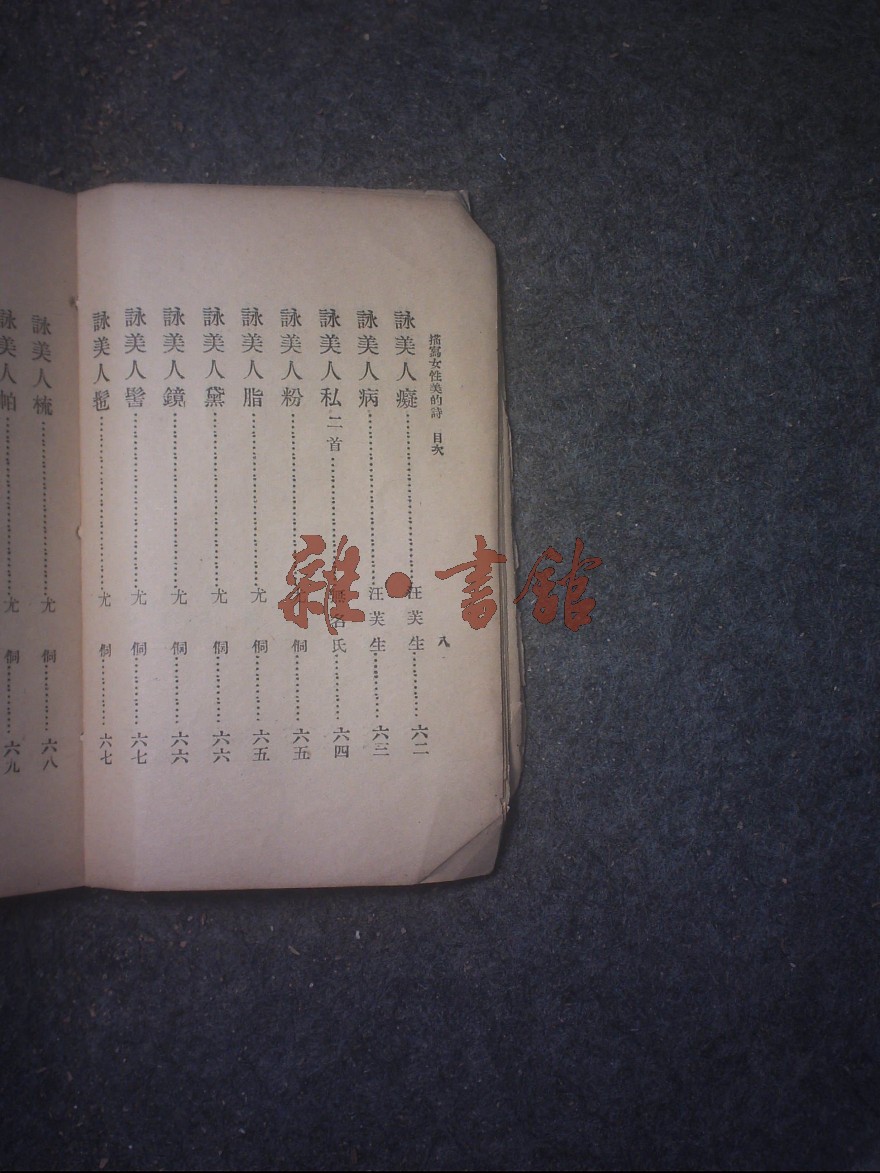 描寫女性美的詩 目次 八
詠美人癡 汪芙生 六二
詠美人病 汪芙生 六三
詠美人私二首 無名氏 六四
詠美人粉 尤侗 六五
詠美人脂 尤侗 六五
詠美人黛 尤侗 六六
詠美人鏡 尤侗 六六
詠美人髻 尤侗 六七
詠美人髢 尤侗 六七
詠美人梳 尤侗 六八
詠美人帕 尤侗 六九
雜·書館